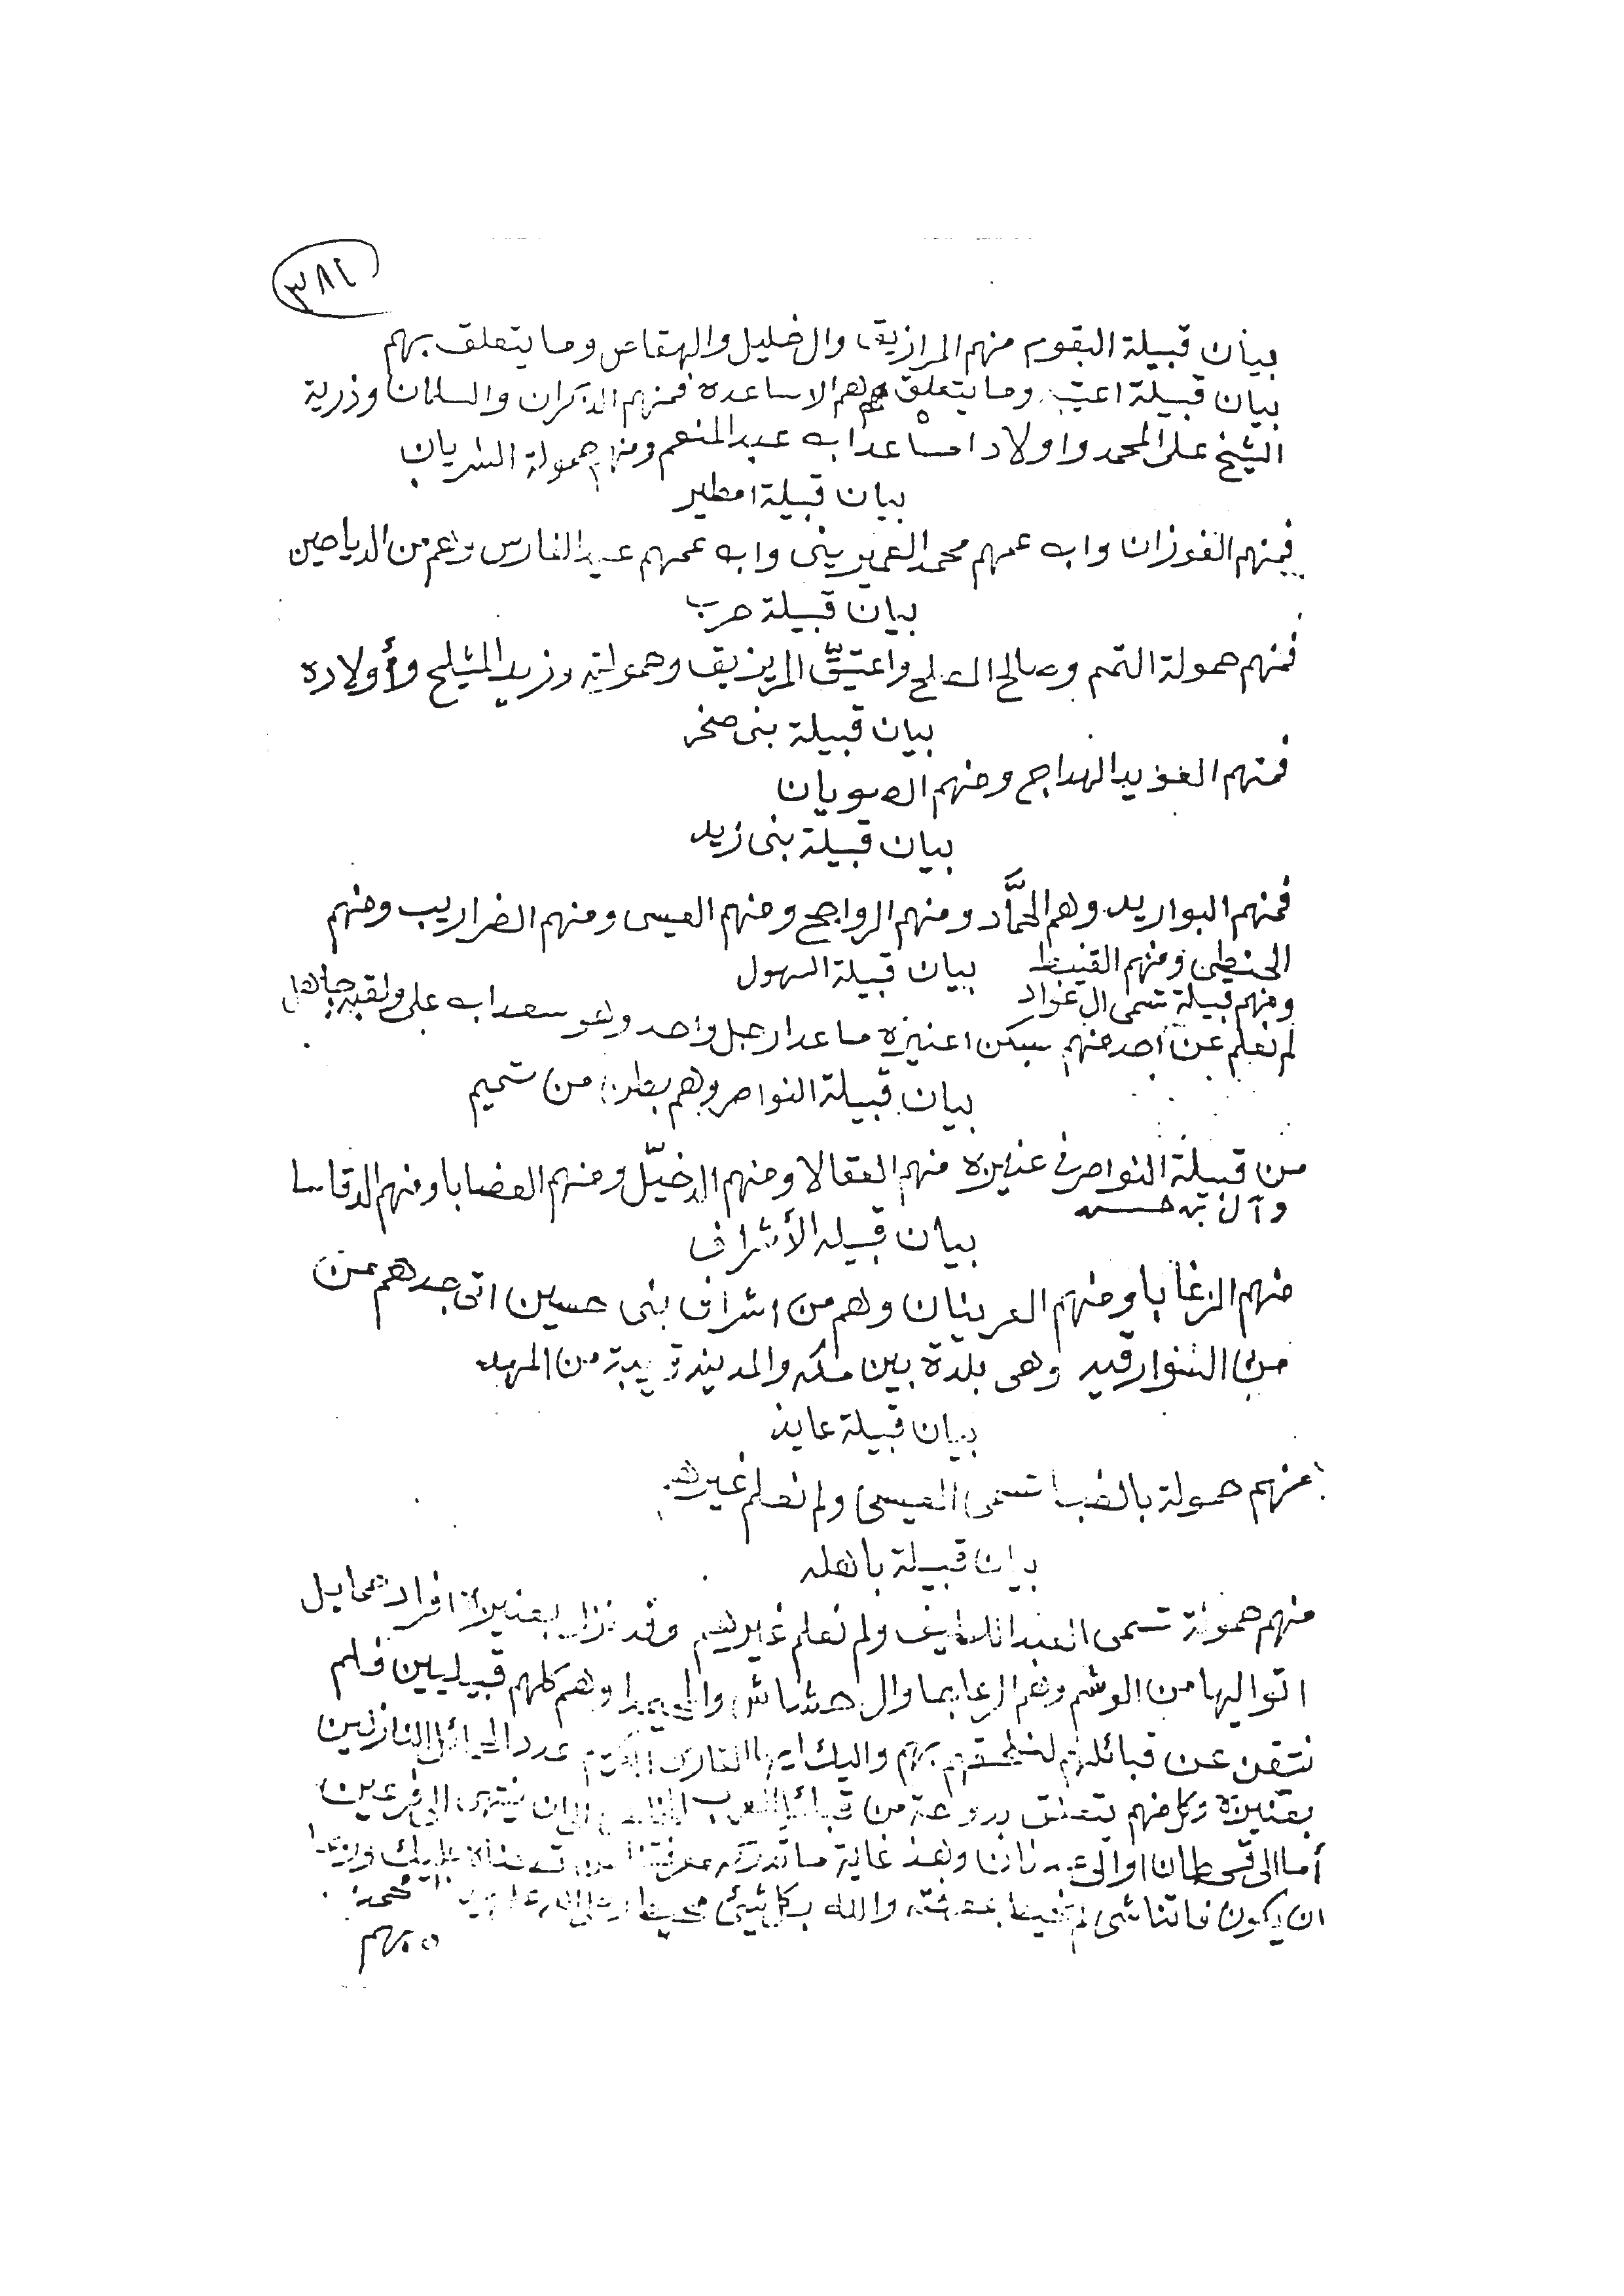 ٣٨٢
بيان قبيلة البقوم منهم المرازيق وال خليل والهقاص وما يتعلق بهم
بيان قبيلة اعتيبـ وما يتعلق بهم وهم الاساعده فمنهم البكران والسلمان وذرية
الشيخ على المحمد واولاد امساعد ابن عبد المنعم ومنهم حمولة الشريان
بيان قبيلة امطير
فمنهم الفوزان وابن عمهم محمد العميرينى وابن عمهم عبد الفارس وهم من الدياحين
بيان قبيلة حرب
فمنهم حمولة التمم وصالح العلي واعتيّق المريزيق وحمولته وزيد المثيلح وأولاده
بيان قبيلة بنى صخر
فمنهم الفريد الهداج ومنهم الصويان
بيان قبيلة بنى زيد
فمنهم البواريد وهم الحمَّاد ومنهم الرواجح ومنهم العيسى ومنهم الضراريب ومنهم
الحنيطى ومنهم القنيبط بيان قبيلة السهول
ومنهم قبيلة تسمى ال عواد
لم نعلم عن أحد منهم سكن اعنيزه ماعدا رجل واحد وهو سعد ابن على ولقبه جاهل
بيان قبيلة النواصر وهم بطن من تميم
من قبيلة النواصر فى عنيزه منهم العقالا ومنهم الدخيّل ومنهم العضابا ومنهم الدقاسا
وآل بن حسن
بيان قبيله الأشراف
منهم الزغابا ومنهم العرينان وهم من اشراف بنى حسين اتى جدهم من
من السوارقيه وهى بلدة بين مكه والمدينه قريبة من المهد
بيان قبيلة عايذ
منهم حمولة بالضبا تسمى العيسى ولم نعلم غيرهم
بيان قبيلة باهله
منهم حمولة تسمى العبد اللطيف ولم نعلم غيرهم وقد نزل بعنيزة افراد حمايل
اتوا اليها من الوشم وهم الزعابا وال هشاش والحميدا وهم كلهم قبيليين فلم
نتيقن عن قبائلهم لنلحقهم بهم واليك ايها القارئ الكريم عدد الحمائل النازلين
بعنيزة وكل منهم يتعلق بدوحة من قبائل العرب الى ان ينتهى الى فرعين
أما الى قحطان او الى عدنان وهذ غاية ما تدركه معرفتنا اليك وربما
ان يكون فاتنا شى لم نحيط بمعرفته والله بكل شيئ محيط
بهم